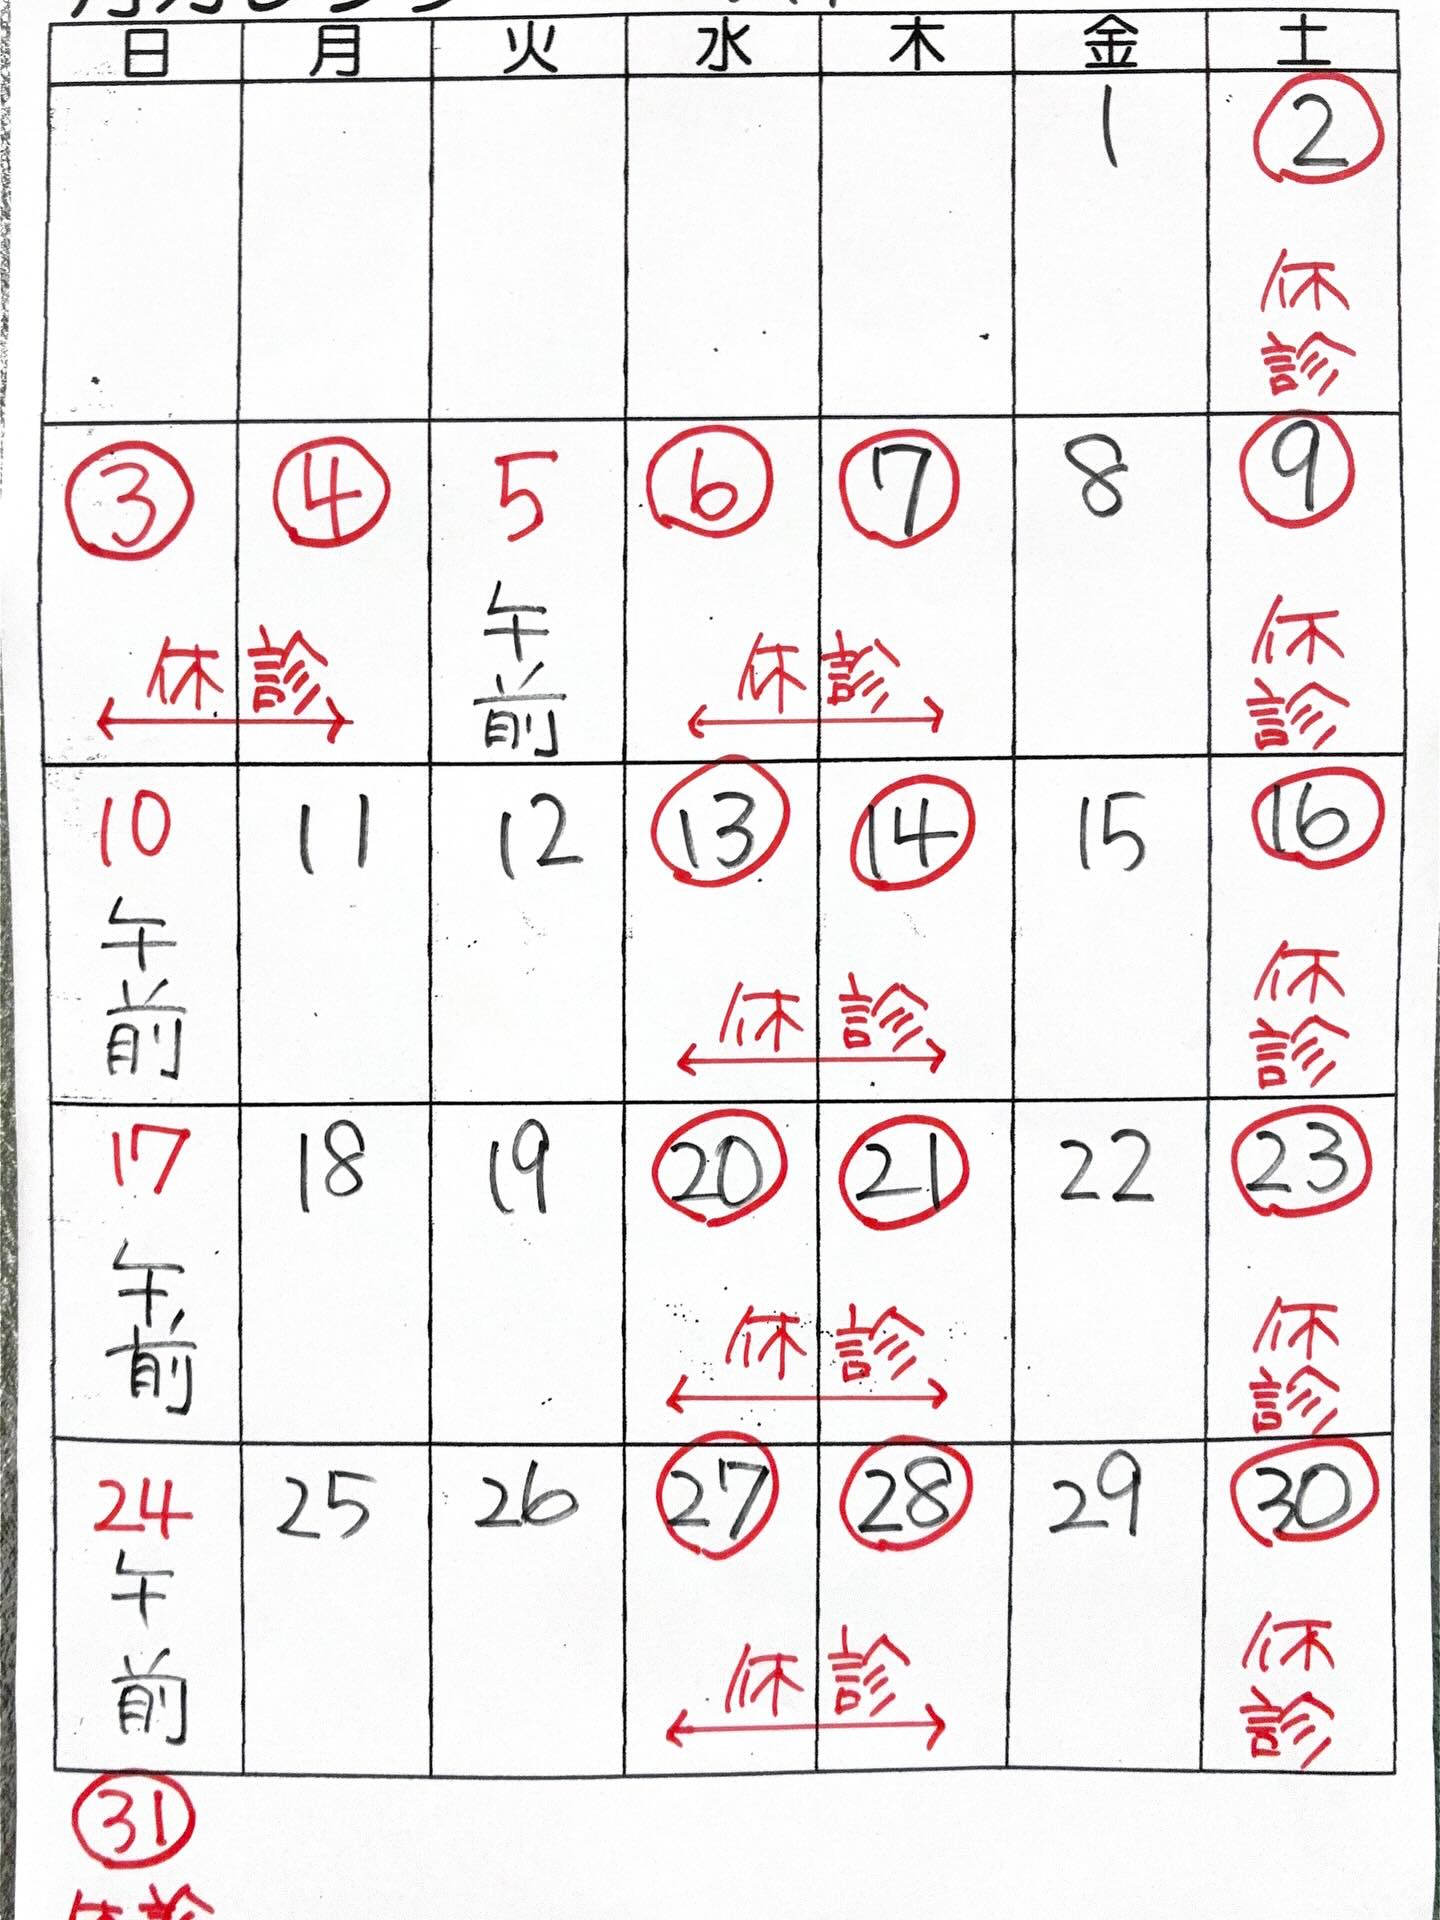 日 月 火 水 木 金 土
1 2
休診
3 4 5 6 7 8 9
休診 午前 休診 休診
10 11 12 13 14 15 16
午前 休診 休診
17 18 19 20 21 22 23
午前 休診 休診
24 25 26 27 28 29 30
午前 休診 休診
31
休診